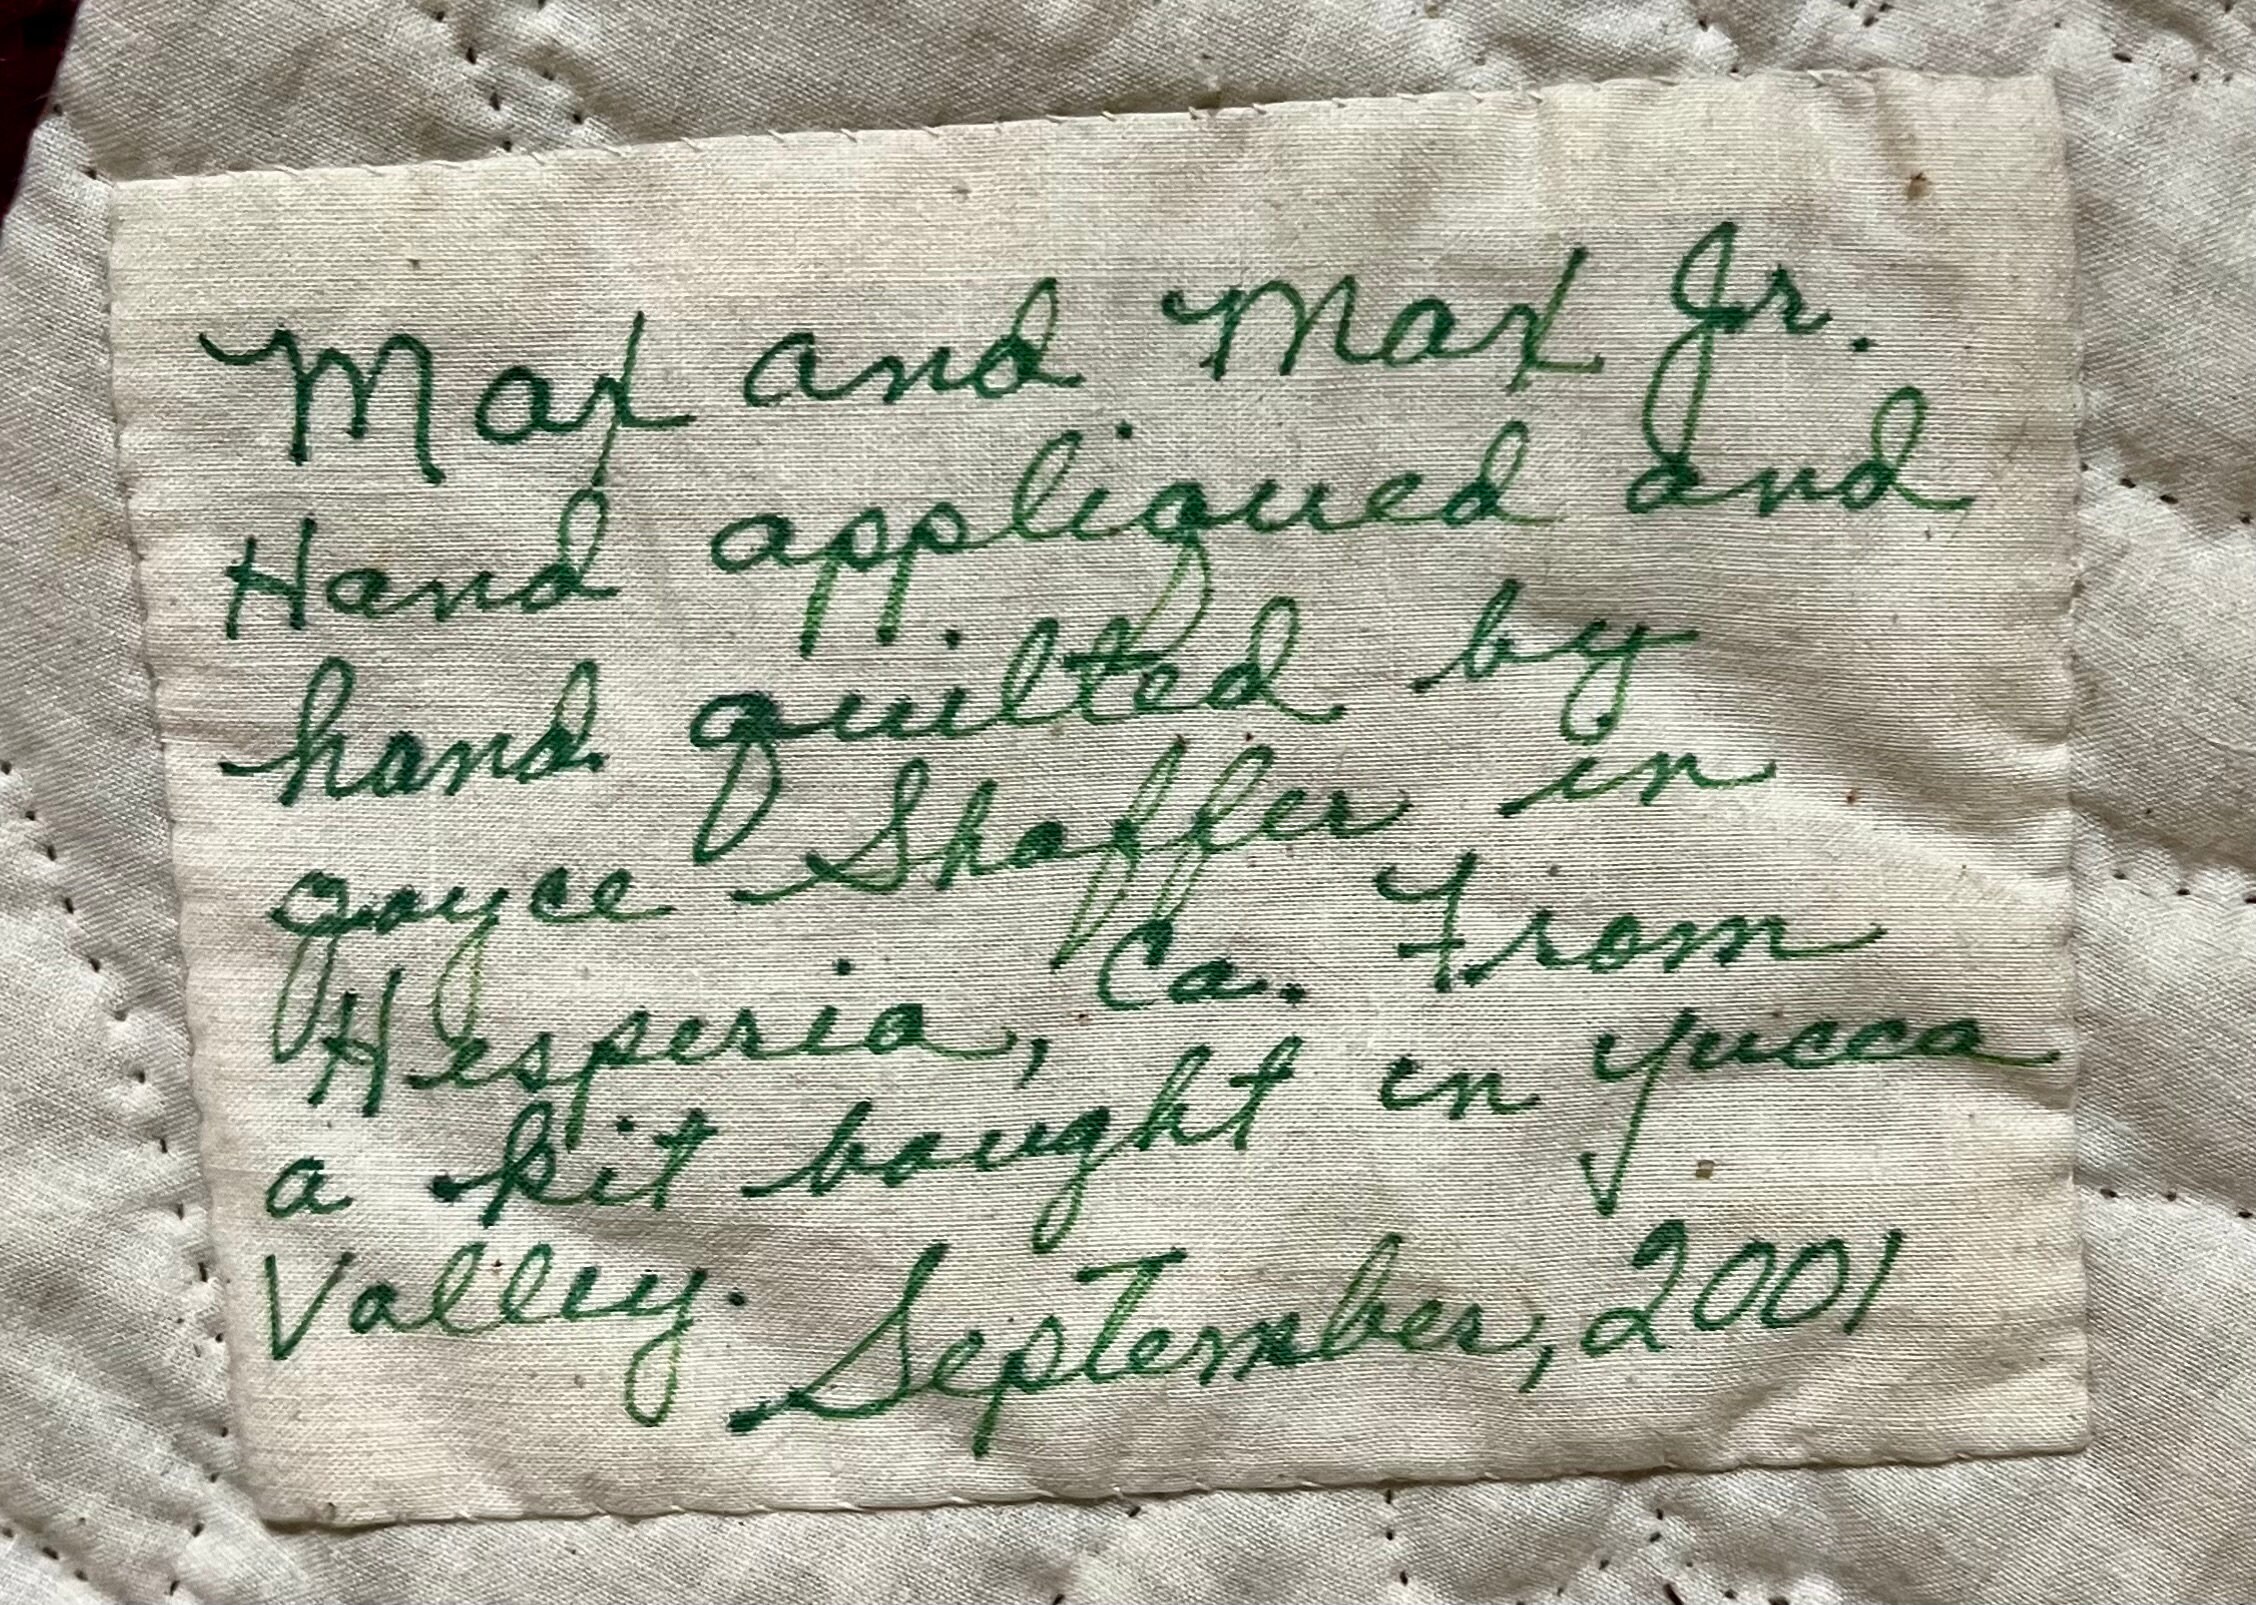 Max and Max Jr.
Hand appliqued and
hand quilted by
Joyce Shaffer in
Hesperia, Ca. From
a kit bought in Yucca
Valley. September, 2001